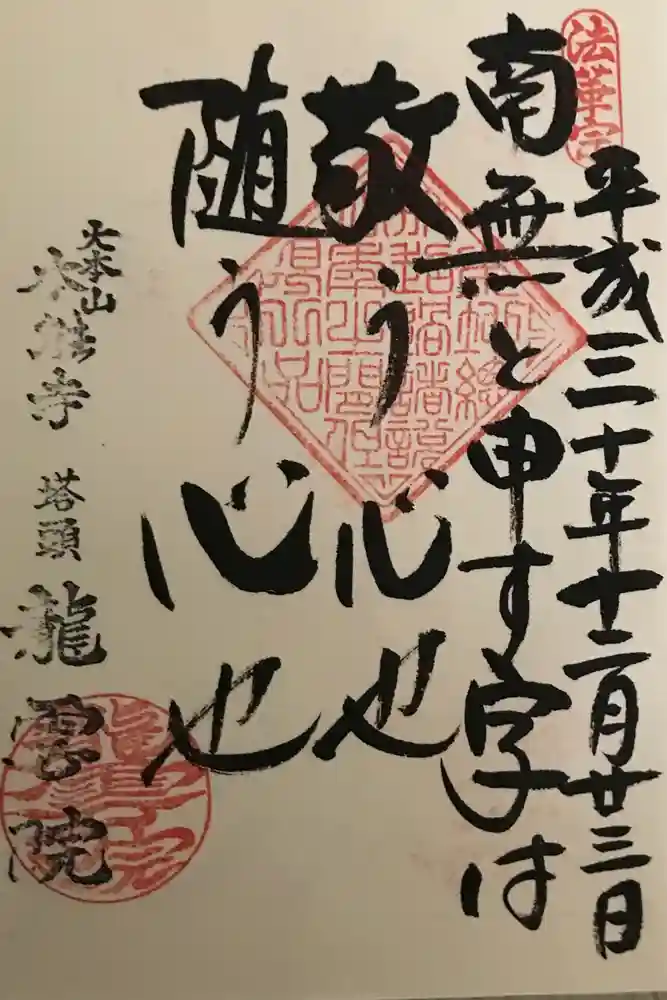 法華宗
平成三十年十二月廿三日
南無と申す字は
敬う心也
随う心也
大本山
本能寺 塔頭 龍雲院